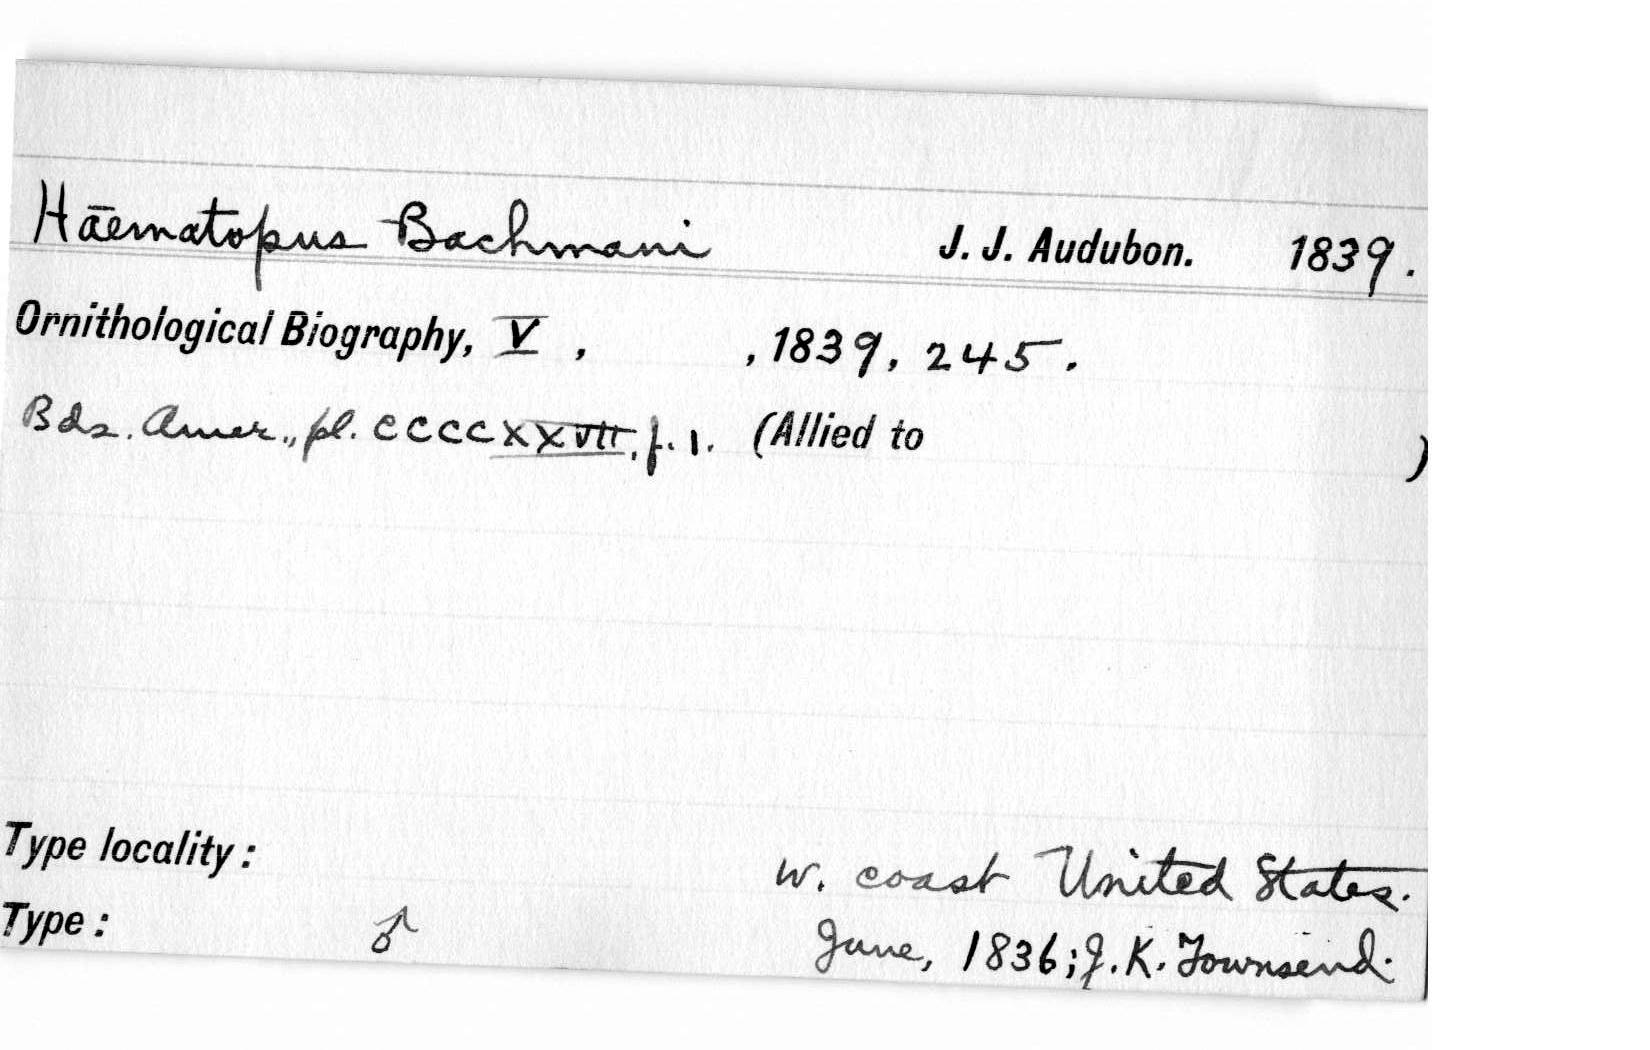 Haematopus Bachmani J. J. Audubon. 1839.
Ornithological Biography, V, , 1839, 245.
Bds. Amer., pl. CCCCXXVII, f. 1. (Allied to )
Type locality: W. coast United States.
Type: ♂ June, 1836; J. K. Townsend.